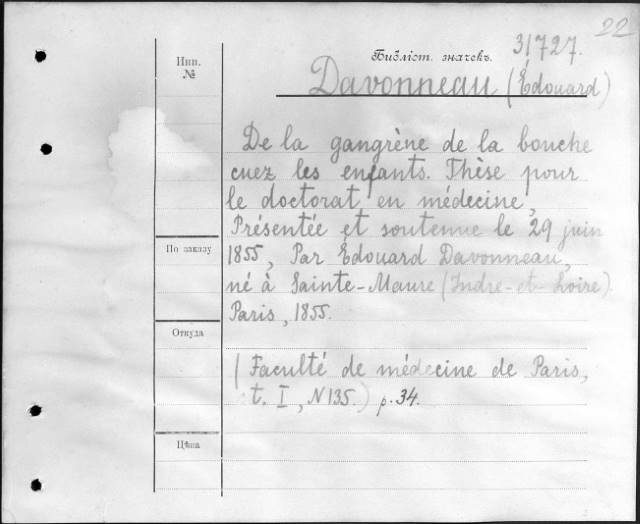 22
Инв. №
Библіот. значекъ. 31727.
Davonneau (Édouard)
De la gangrène de la bouche
cuez les enfants. Thèse pour
le doctorat en médecine,
Présentée et soutenue le 29 juin
1855, Par Edouard Davonneau,
né à Sainte-Maure (Indre-et-Loire)
Paris, 1855.
(Faculté de médecine de Paris,
t. I, N 135.) p. 34.
По заказу
Откуда
Цѣна